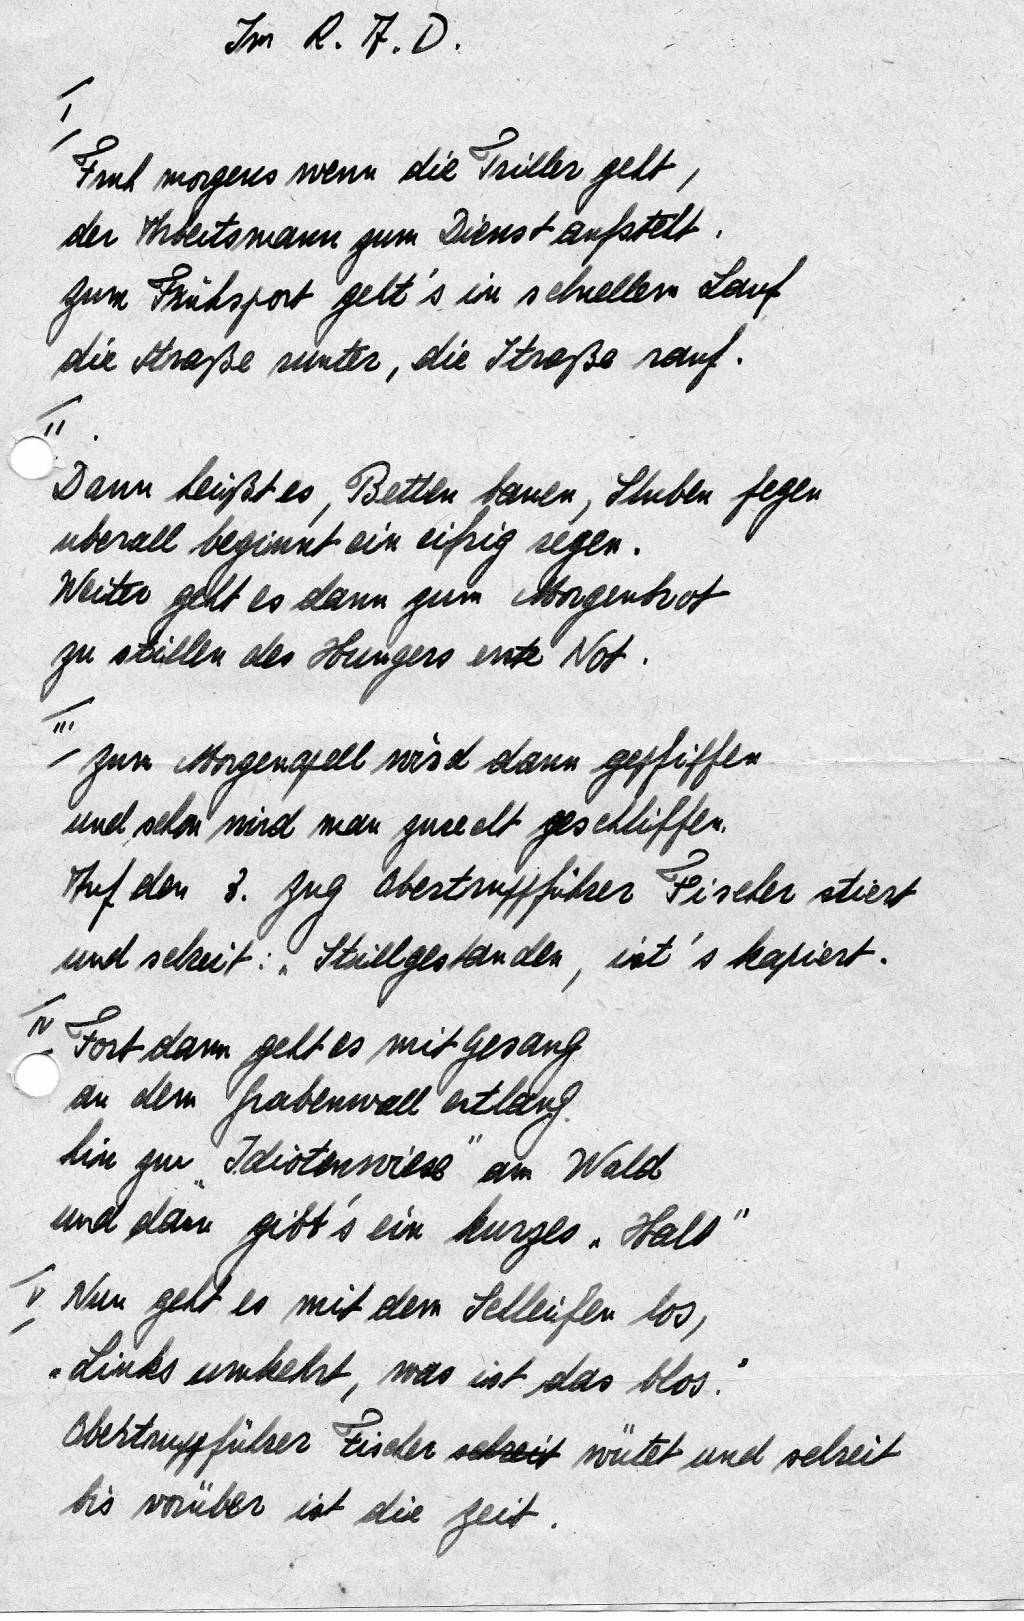 Im R. A. D.
I
Früh morgens wenn die Triller geht,
der Arbeitsmann zum Dienst aufsteht.
zum Frühsport geht's in schnellem Lauf
die Straße runter, die Straße rauf.
II.
Dann heißt es, Betten bauen, Stuben fegen
uberall beginnt ein eifrig regen.
Weiter geht es dann zum Morgenbrot
zu stillen des Hungers erste Not.
III
zum Morgenapell wird dann gepfiffen
und schon wird man zurecht geschliffen.
Auf den 3. Zug Obertruppführer Fischer stiert
und schreit: „Stillgestanden, ist's kapiert.
IV Fort dann geht es mit Gesang
an dem Grabenwall entlang
hin zur „Idiotenwiese" am Wald
und dann gibt's ein kurzes „Halt"
V Nun geht es mit dem Schleifen los,
„Links umkehrt, was ist das blos."
Obertruppführer Fischer schreit wütet und schreit
bis vorüber ist die Zeit.